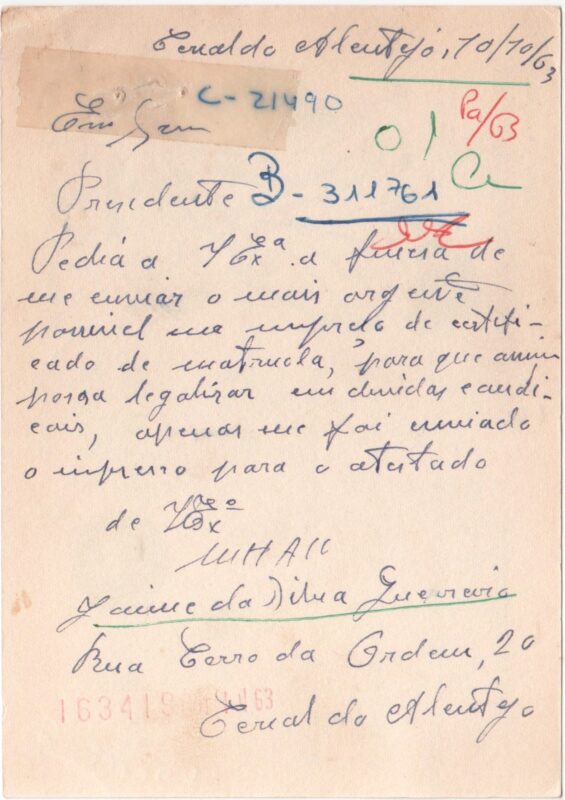 Cercal do Alentejo, 10/10/63
C-21490
Pa/63
Exm Snr
01
Presidente B-311761
Pediá a V Exª. a fineza de
me enviar o mais orgente
possivel um impreso de certifi-
cado de matricula, para que assim
possa legalizar em devidas condi-
ções, apenas me foi enviado
o impresso para o atestado
de V Exª
Jaime da Silva Guerreiro
Rua Cerro da Ordem, 20
163419 63
Cercal do Alentejo